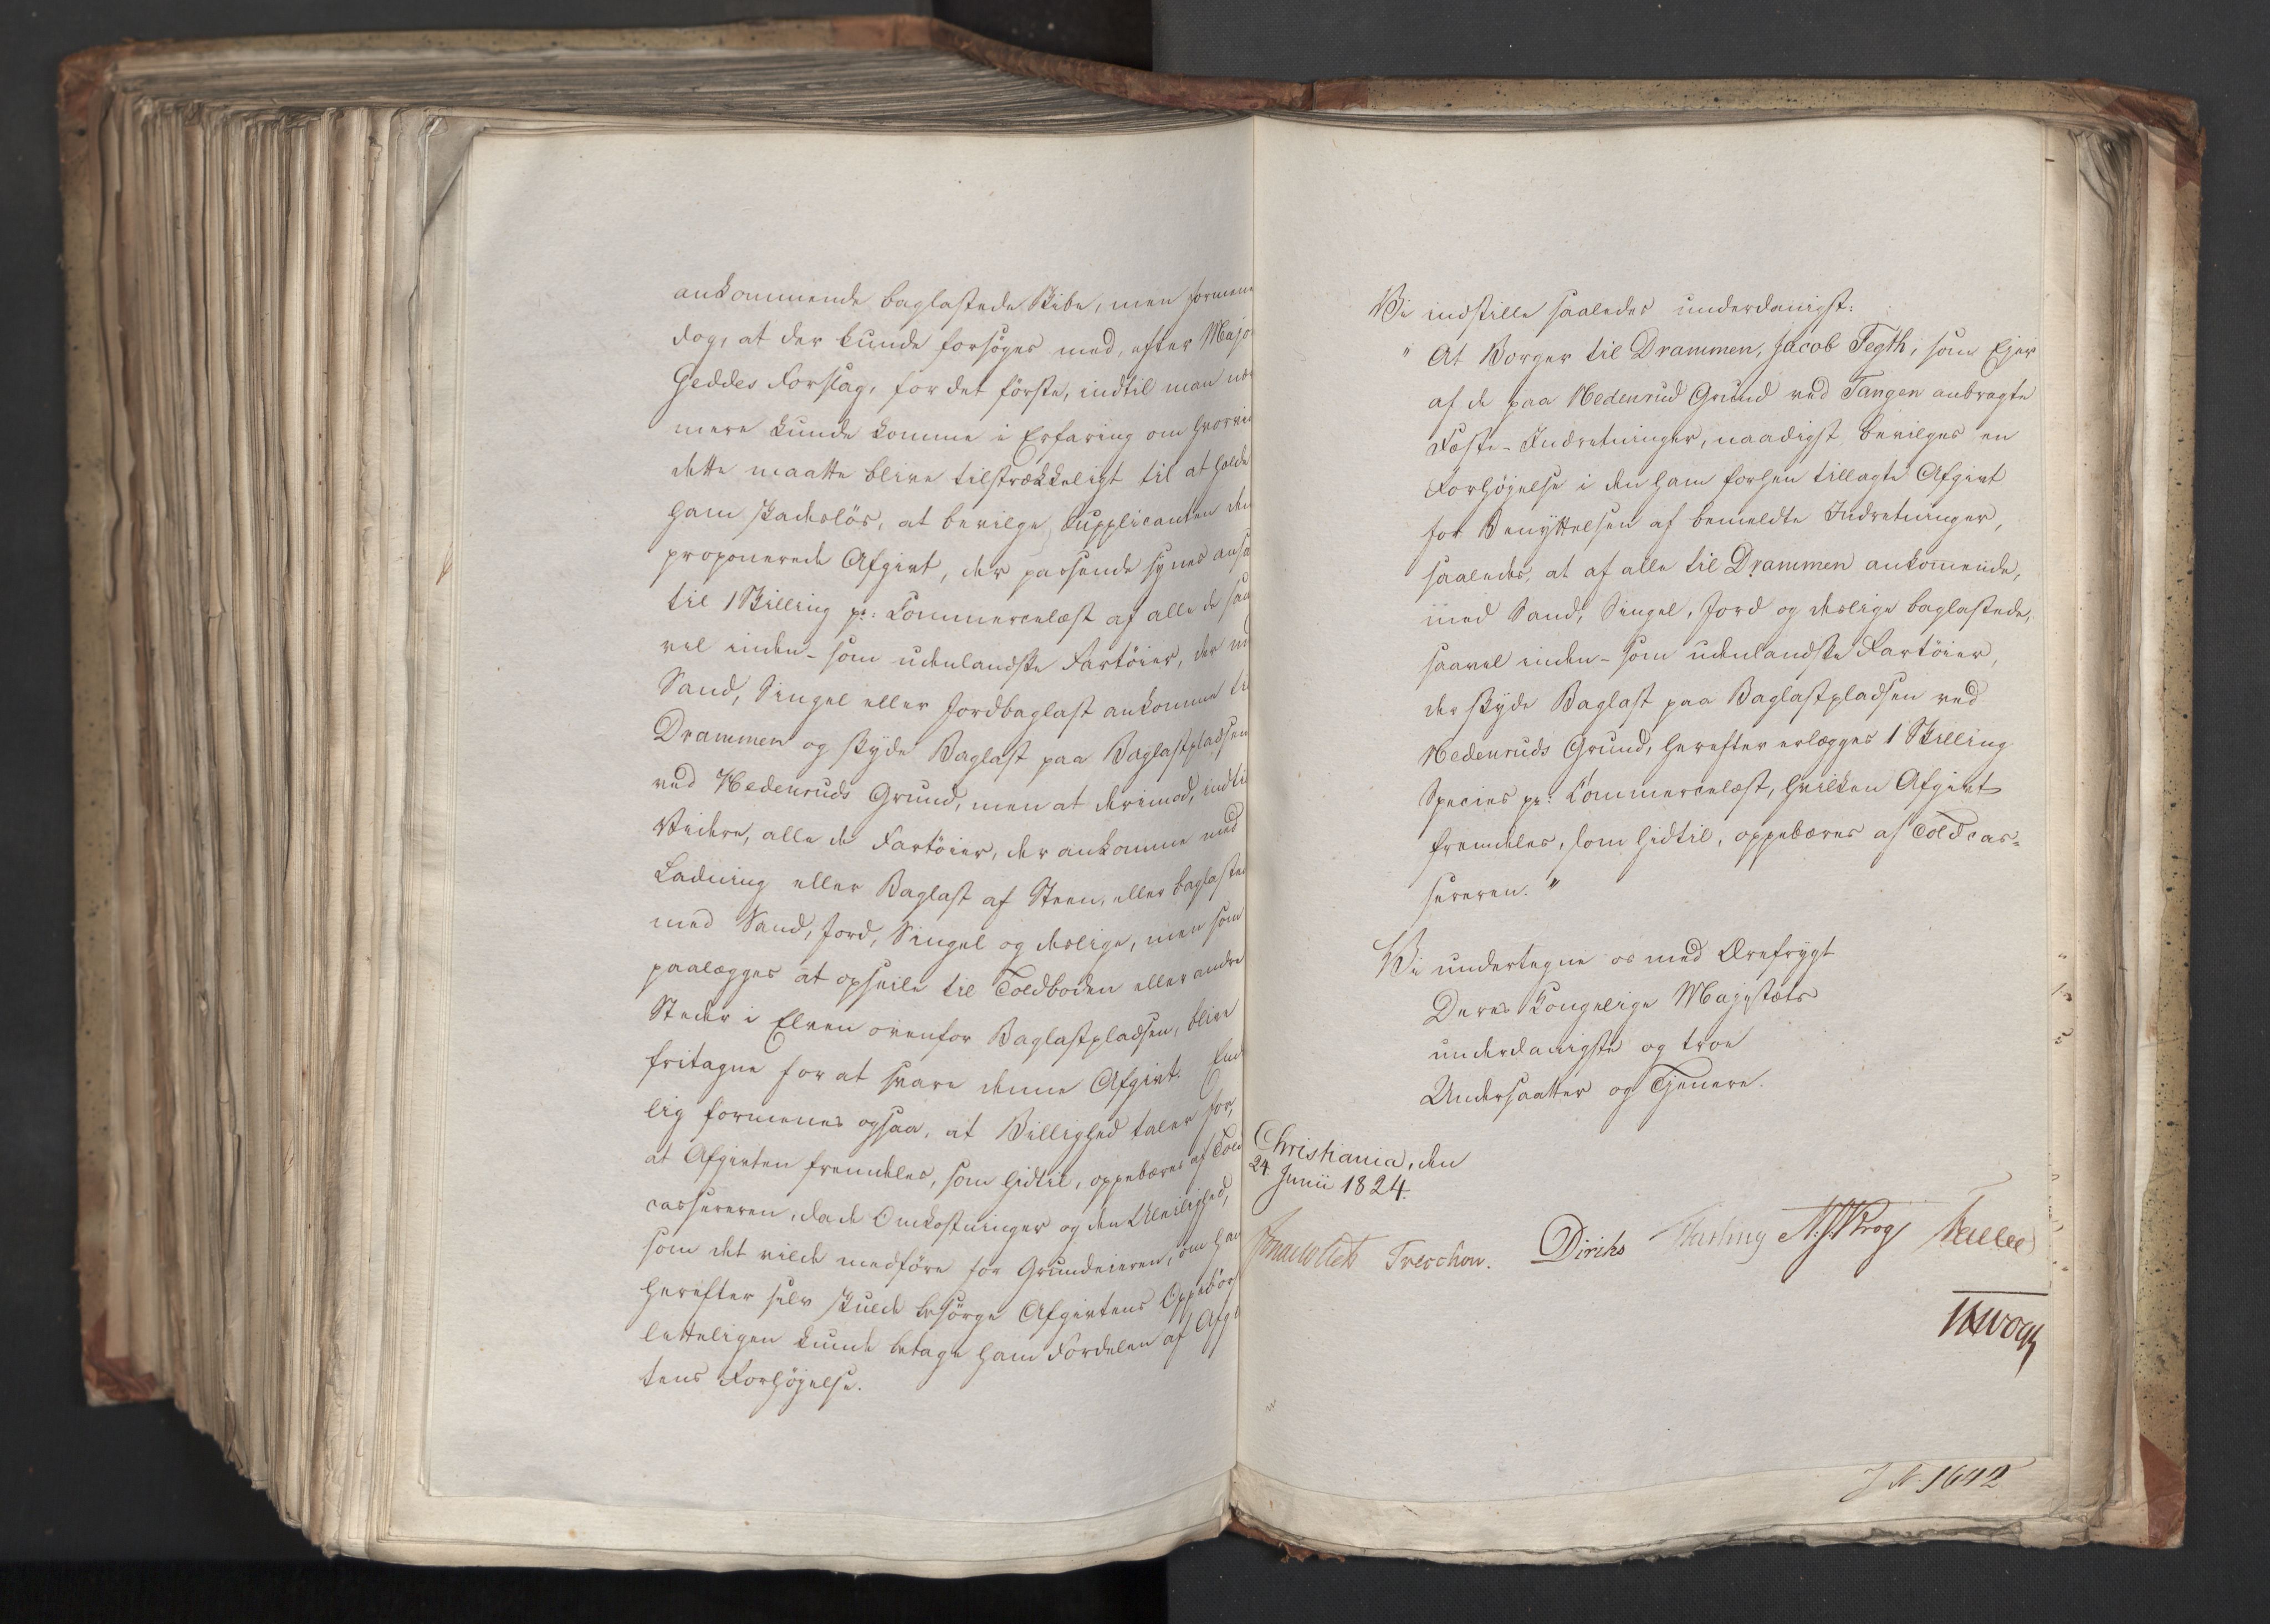 ankommende baglastede Skibe, men formene
dog, at der kunde forsøges med, efter Majo
Geddes Forslag, for det første, indtil man nær
mere kunde komme i Erfaring om hvorvi
dette maatte blive tilstrækkeligt til at holde
ham skadesløs, at bevilge Supplicanten den
proponerede Afgivt, der passende synes ansa
til 1 Skilling pr: Commercelæst af alle de saa
vel inden- som udenlandske Fartøier, der med
Sand, Singel eller Jordbaglast ankomme til
Drammen og skyde Baglast paa Baglastpladsen
ved Nedenruds Grund, men at derimod, indtil
Videre, alle de Fartøier, der ankomme med
Ladning eller Baglast af Steen, eller baglasted
med Sand, Jord, Singel og deslige, men som
paalægges at opseile til Toldboden eller andre
Steder i Elven ovenfor Baglastpladsen, blive
fritagne for at svare denne Afgivt. End
lig formenes ogsaa, at Billighed taler for,
at Afgivten fremdeles, som hidtil, oppebæres af Told
cassereren, da de Omkostninger og den Uleilighed,
som det vilde medføre for Grundeieren, om han
herefter selv skulde besørge Afgivtens Oppebørs
letteligen kunde betage ham Fordelen af Afgi
tens Forhøjelse.
Vi indstille saaledes underdanigst:
" At Borger til Drammen, Jacob Tegth, som Ejer
af de paa Nedenrud Grund ved Tangen anbragte
Fæste-Indretninger, naadigst bevilges en
Forhøjelse i den ham forhen tillagte Afgivt
for Benyttelsen af bemeldte Indretninger,
saaledes, at af alle til Drammen ankommende,
med Sand, Singel, Jord og deslige baglastede,
saavel inden- som udenlandske Fartøier,
der skyde Baglast paa Baglastpladsen ved
Nedenruds Grund, herefter erlægges 1 Skilling
Species pr: Commercelæst, hvilken Afgivt
fremdeles, som hidtil, oppebæres af Toldcas=
sereren. "
Vi undertegne os med Ærefrygt
Deres Kongelige Majestæts
underdanigste og troe
Undersaatter og Tjenere.
Christiania, den
24. Junii 1824.
Treschow. Diriks N. J. Krog
J N. 1642